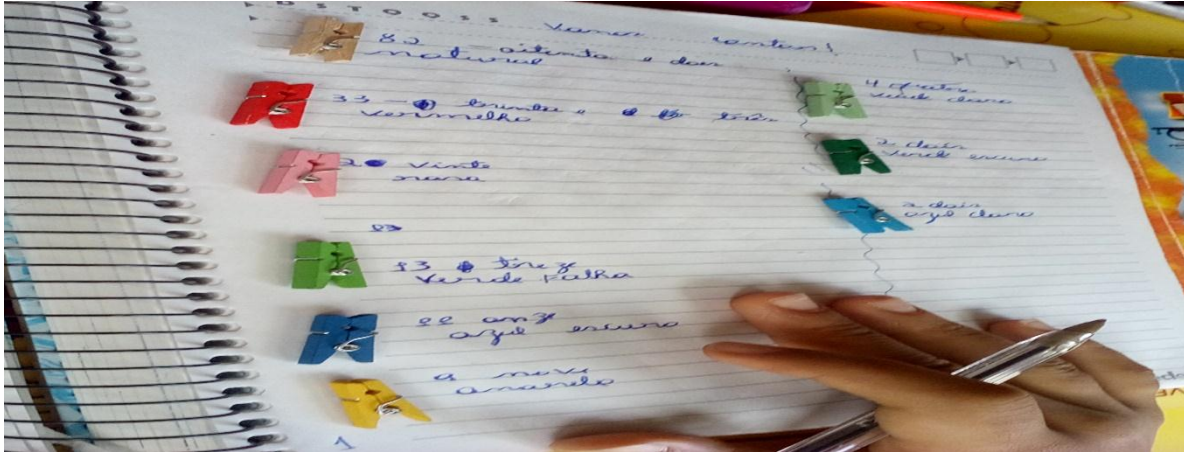 D S T Q Q S S
Vamos contar!
82 - oitenta e dois
natural
33 - trinta e e três
vermelho
20 vinte
rosa
13
13 treze
Verde Folha
11 onze
azul escuro
9 nove
amarelo
4 quatro
verde claro
2 dois
verde escuro
2 dois
azul claro
1